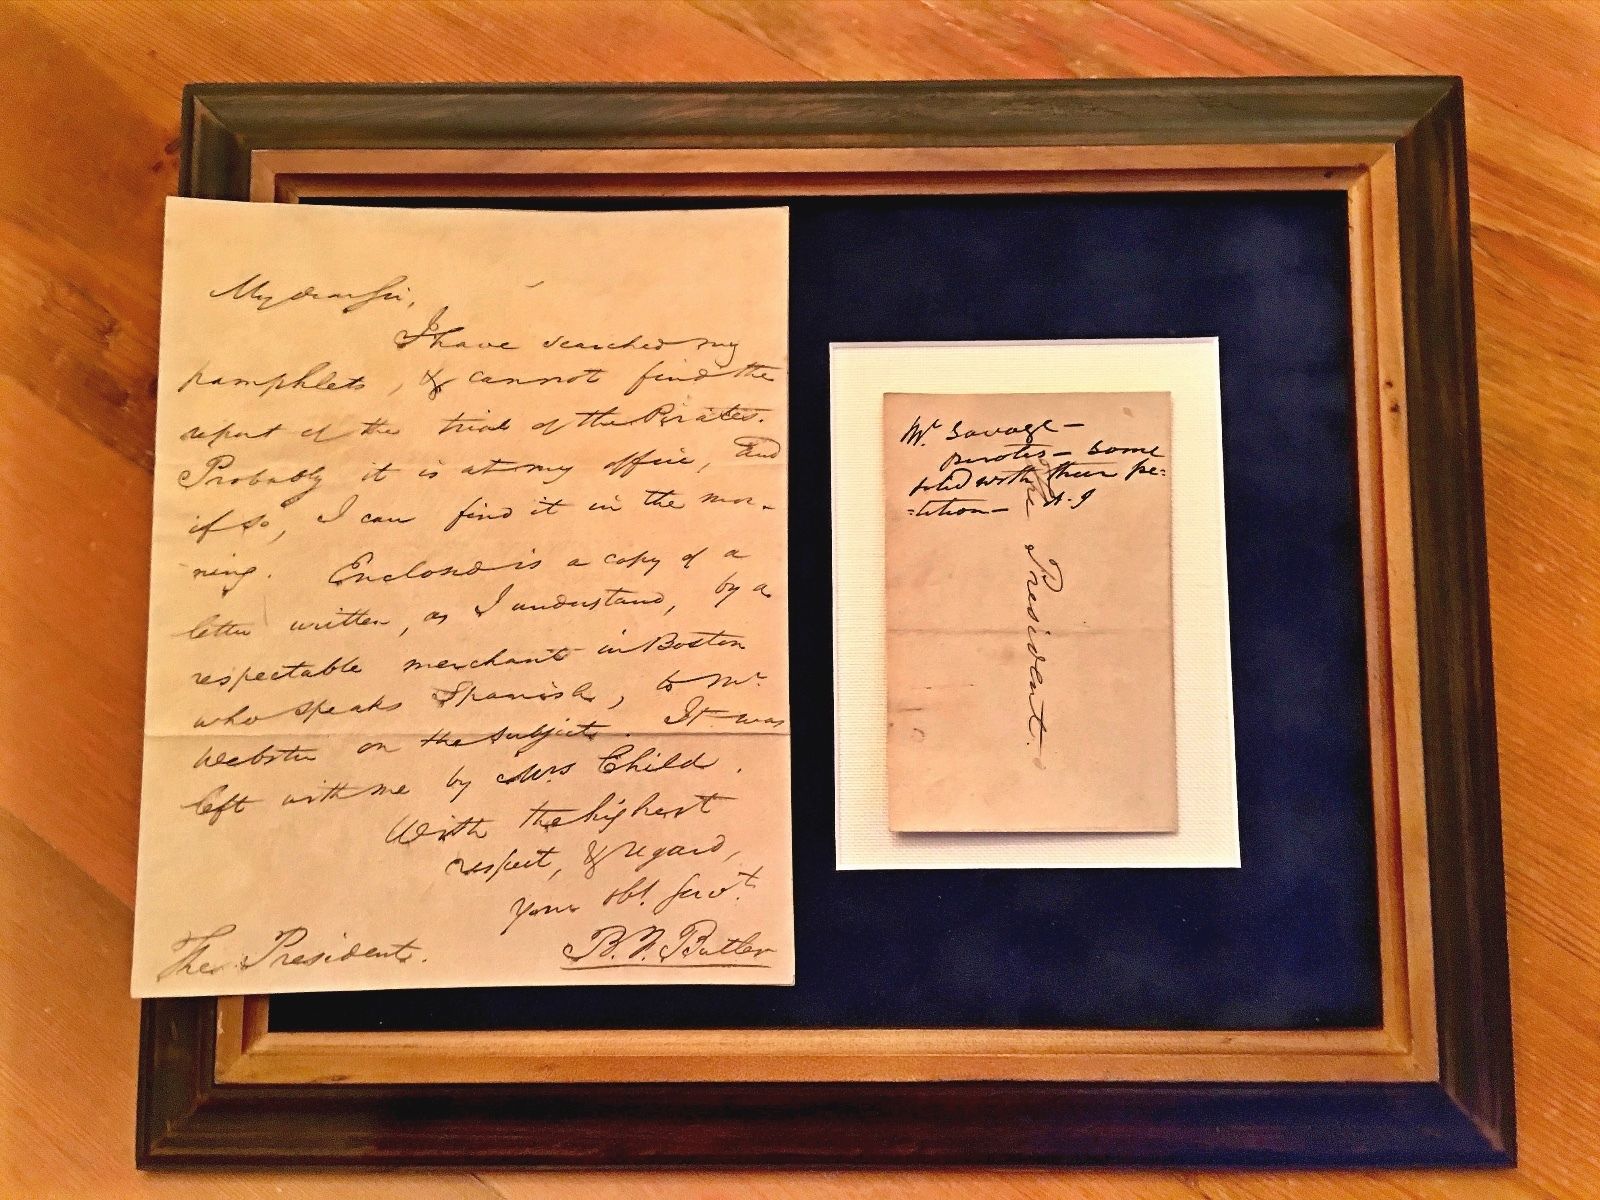 My dear Sir,
I have searched my
pamphlets, & cannot find the
report of the trial of the Pirates.
Probably it is at my office, and
if so, I can find it in the mor-
ning. Enclosed is a copy of a
letter written, as I understand, by a
respectable merchant in Boston
who speaks Spanish, to Mr.
Webster on the subject. It was
left with me by Mrs Child.
With the highest
respect, & regard,
Your obt. Servt.
B. F. Butler
The President.
Mr. Savage—
Pirates—
with their pe:
:tition— A. J
The President.